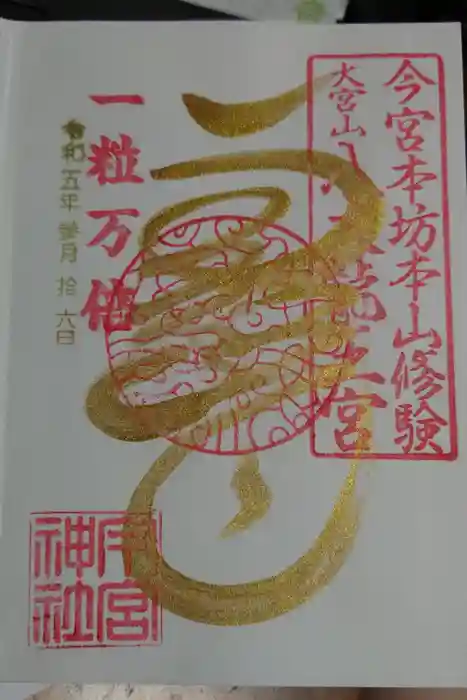 今宮本坊本山修験
大宮山八大龍王宮
一粒万倍
令和五年 参月 拾六日
今宮
神社